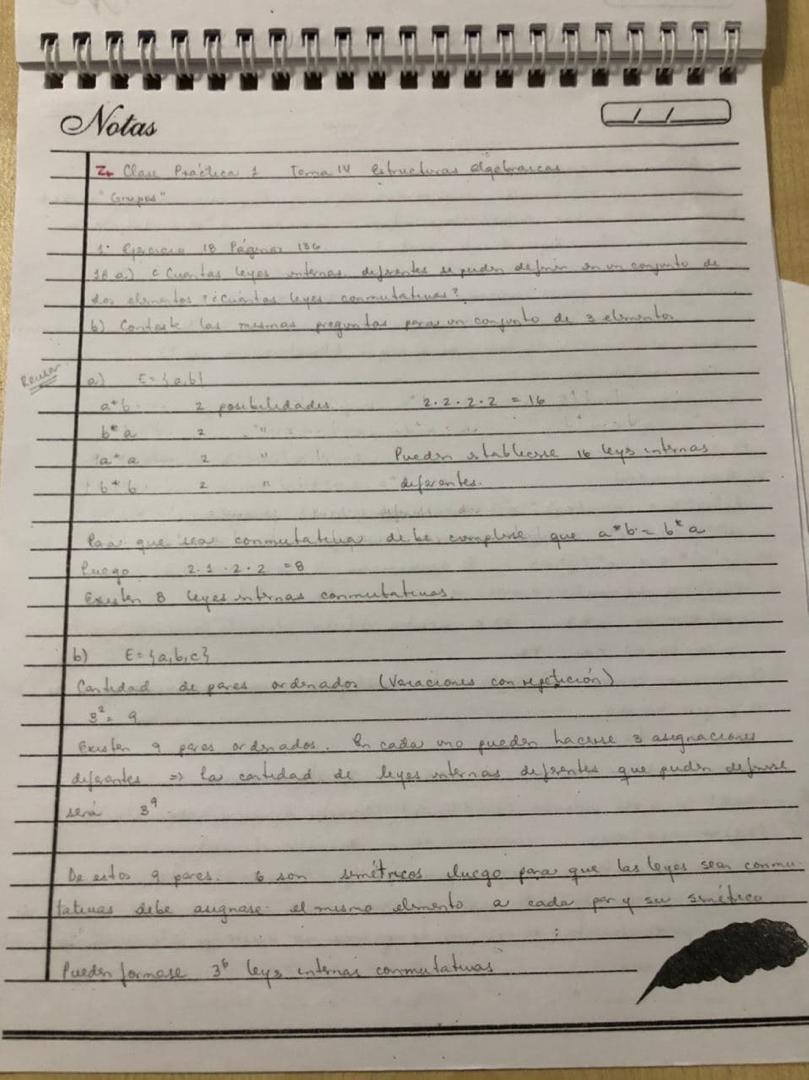 Notas
/ /
Clase Práctica 1 Tema IV Estructuras algebraicas
"Grupos"
1. Ejercicio 18 Página 186
18 a.) ¿Cuántas leyes internas diferentes se pueden definir en un conjunto de
dos elementos? ¿Cuántas leyes conmutativas?
b) Conteste las mismas preguntas para un conjunto de 3 elementos
Revisar
a) E = {a,b}
a*b 2 posibilidades 2.2.2.2 = 16
b*a 2 "
a*a 2 " Pueden establecerse 16 leyes internas
b*b 2 " diferentes.
Para que sea conmutativa debe cumplirse que a*b = b*a
luego 2.1.2.2 = 8
Existen 8 leyes internas conmutativas.
b) E = {a,b,c}
Cantidad de pares ordenados (Variaciones con repetición)
3² = 9
Existen 9 pares ordenados. En cada uno pueden hacerse 3 asignaciones
diferentes => la cantidad de leyes internas diferentes que pueden definirse
será 3⁹
De estos 9 pares. 6 son simétricos luego para que las leyes sean conmu-
tativas debe asignarse el mismo elemento a cada par y su simétrico
Pueden formarse 3⁶ leyes internas conmutativas